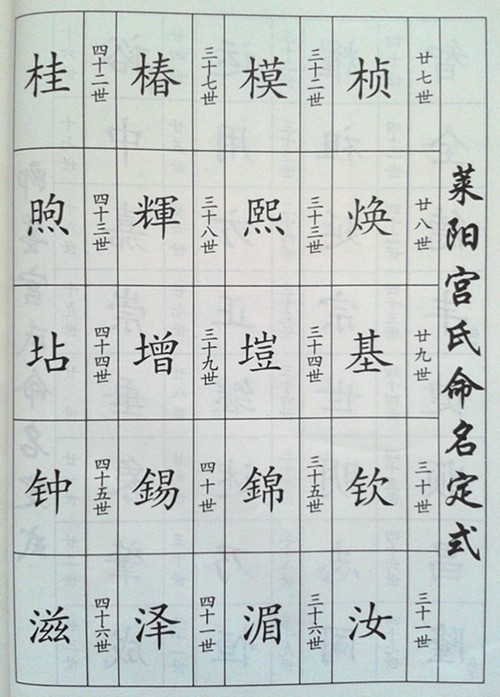 莱阳宫氏命名定式
廿七世 桢
廿八世 焕
廿九世 基
三十世 钦
三十一世 汝
三十二世 模
三十三世 熙
三十四世 塏
三十五世 錦
三十六世 湄
三十七世 椿
三十八世 輝
三十九世 增
四十世 錫
四十一世 泽
四十二世 桂
四十三世 煦
四十四世 坫
四十五世 钟
四十六世 滋